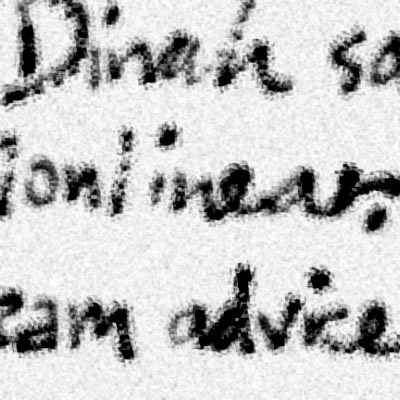 Dinah so
onlinear.
eam advice